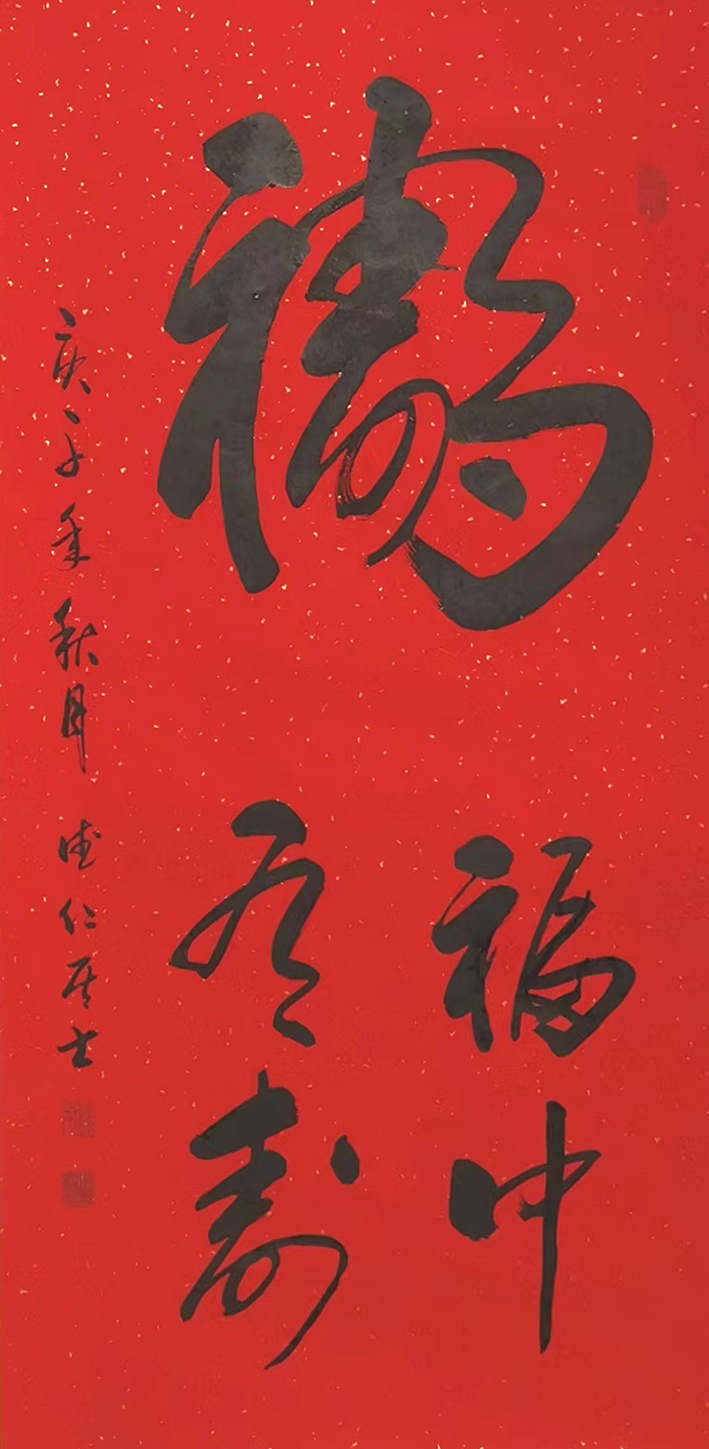 福
福中
有寿
庚子年秋月 德仁居士